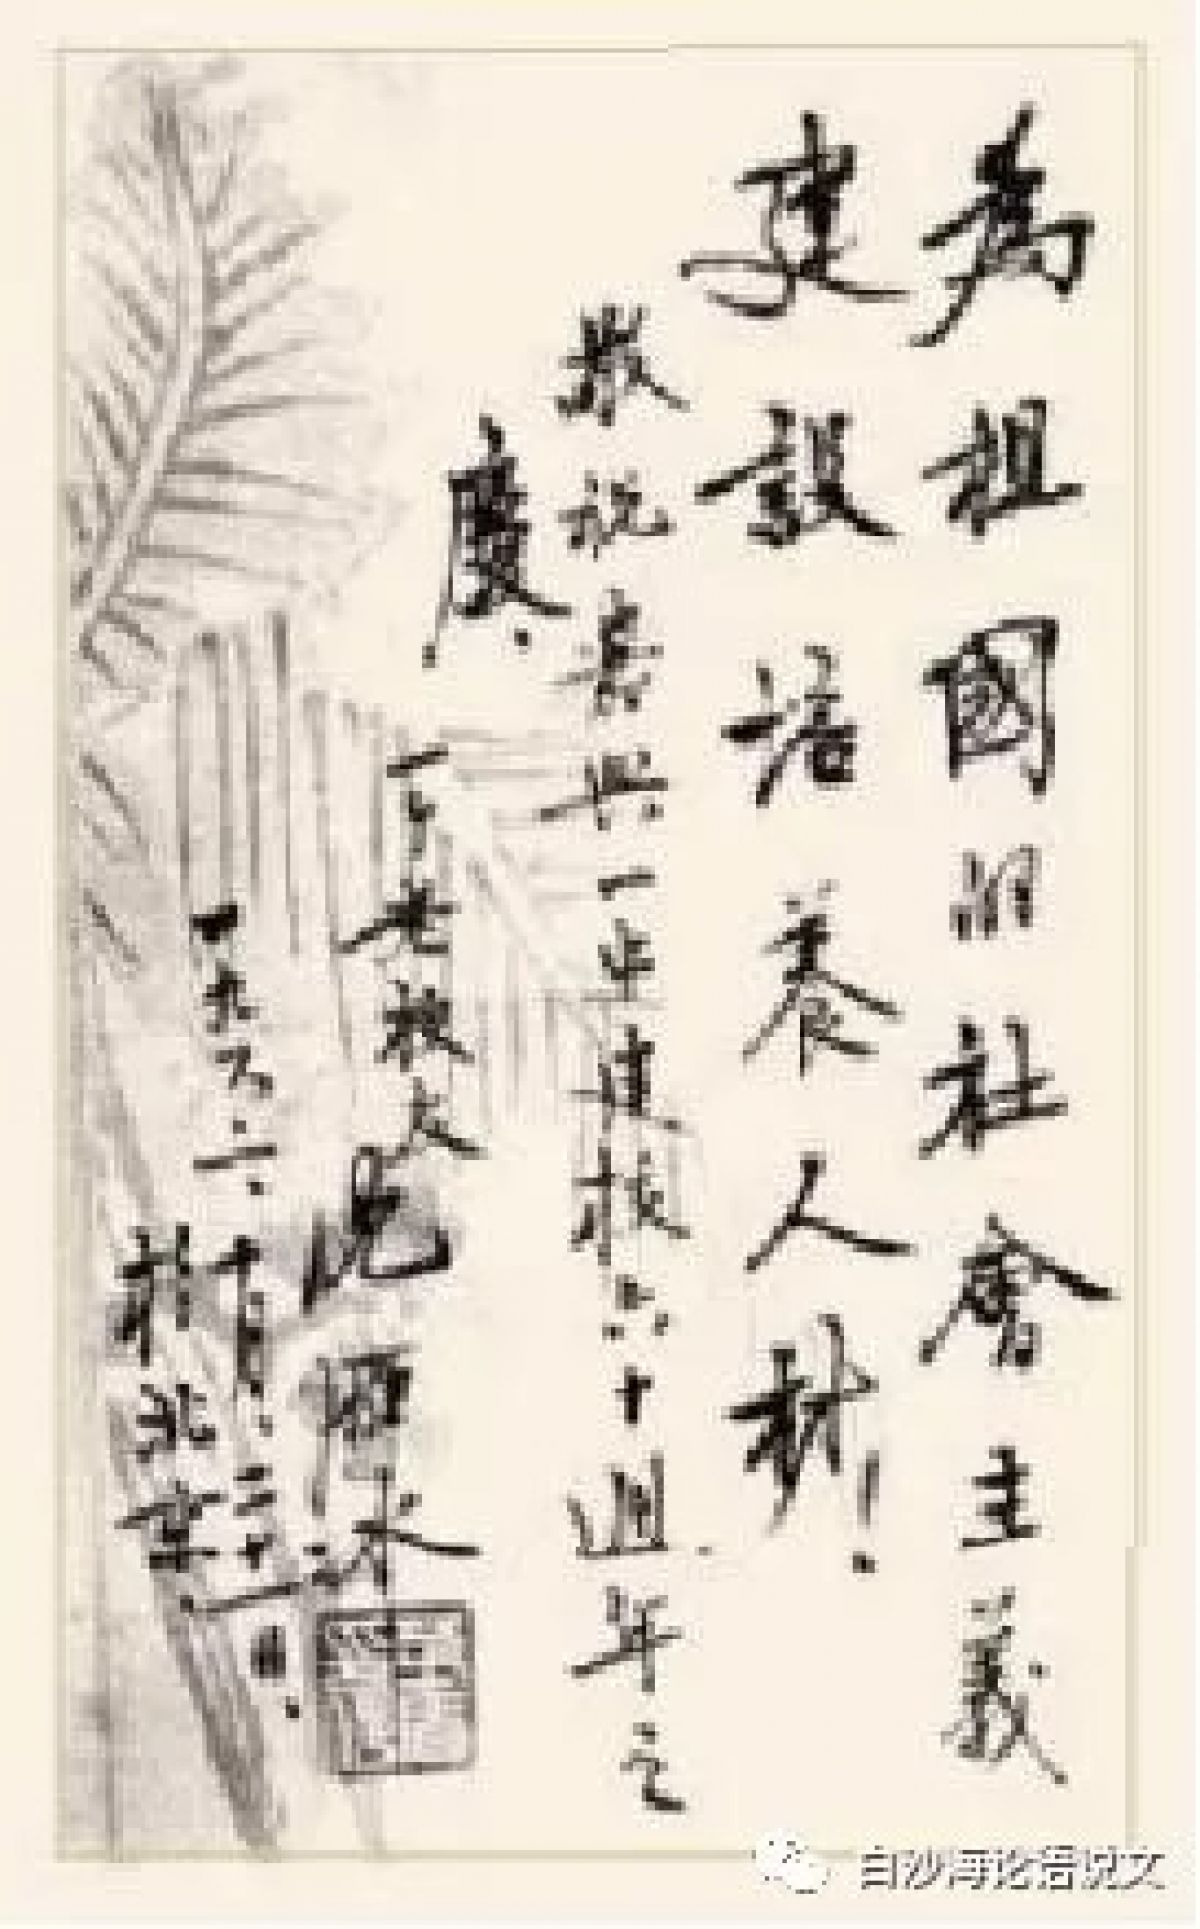 為祖國的社會主義
建設培養人材！
敬祝嘉興一中建校六十週年之
慶.
一個老校友
一九六二十月、二十
於北京
日.
白沙海论语说文